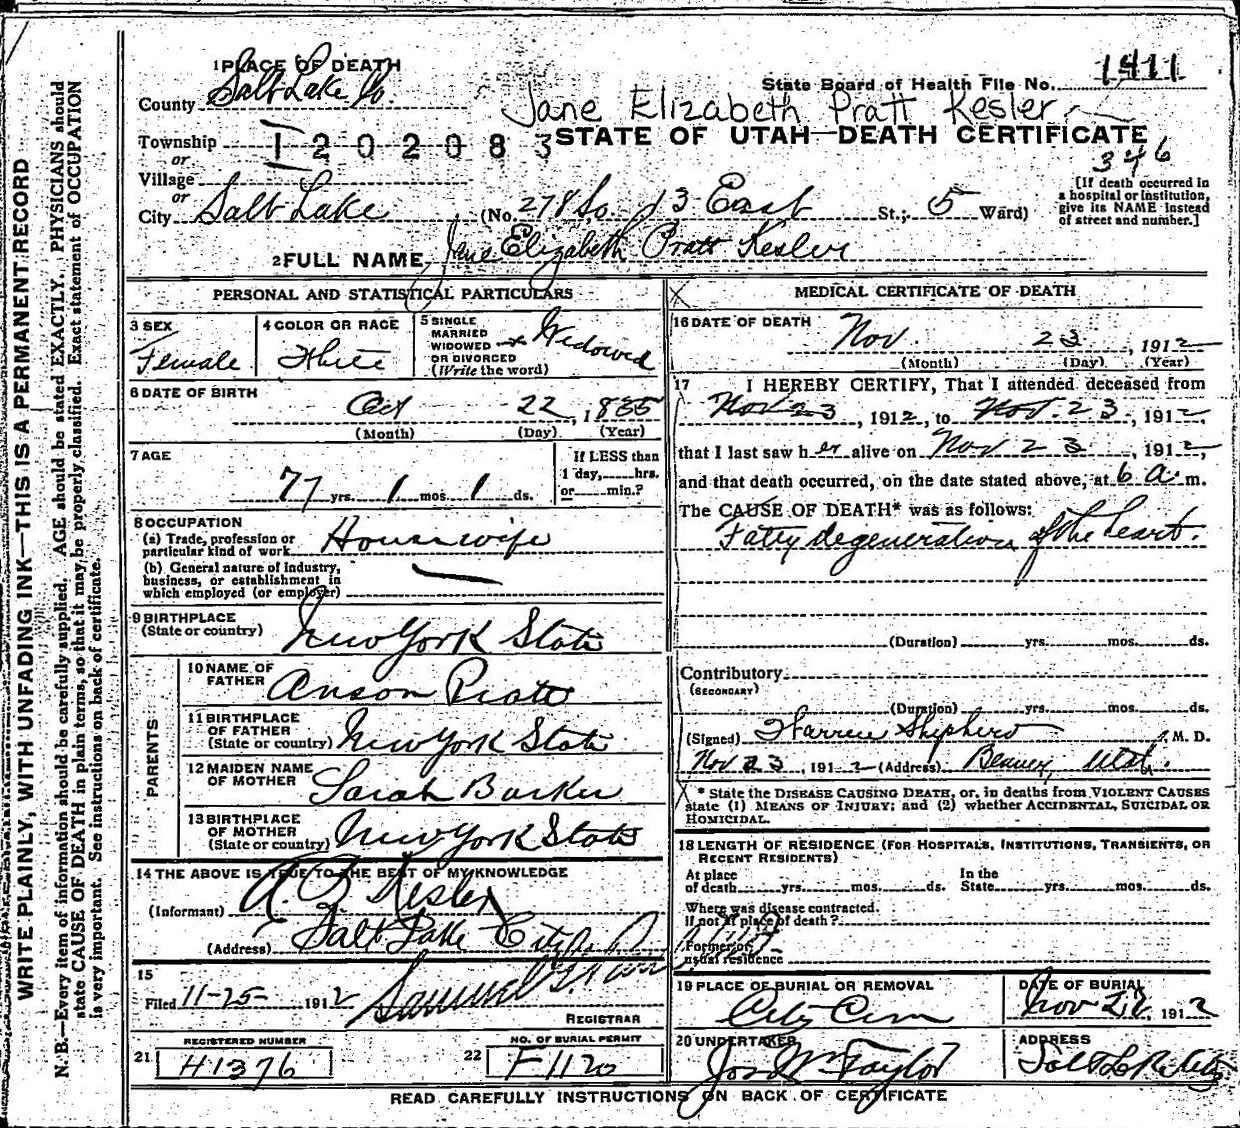 1 PLACE OF DEATH
County Salt Lake Co.
State Board of Health File No. 1411
Jane Elizabeth Pratt Kesler
Township 1202083
or
STATE OF UTAH—DEATH CERTIFICATE
346
Village
or
City Salt Lake (No. 278 So. 13 East St.; 5 Ward)
[If death occurred in
a hospital or institution,
give its NAME instead
of street and number.]
2 FULL NAME Jane Elizabeth Pratt Kesler
PERSONAL AND STATISTICAL PARTICULARS
3 SEX
Female
4 COLOR OR RACE
White
5 SINGLE
MARRIED
WIDOWED
OR DIVORCED
(Write the word)
Widowed
6 DATE OF BIRTH
Oct 22, 1835
(Month) (Day) (Year)
7 AGE
77 yrs. 1 mos. 1 ds.
If LESS than
1 day, hrs.
or min.?
8 OCCUPATION
(a) Trade, profession or
particular kind of work Housewife
(b) General nature of industry,
business, or establishment in
which employed (or employer)
9 BIRTHPLACE
(State or country) New York State
PARENTS
10 NAME OF
FATHER Anson Pratt
11 BIRTHPLACE
OF FATHER
(State or country) New York State
12 MAIDEN NAME
OF MOTHER Sarah Barker
13 BIRTHPLACE
OF MOTHER
(State or country) New York State
14 THE ABOVE IS TRUE TO THE BEST OF MY KNOWLEDGE
(Informant) A. B. Kesler
(Address) Salt Lake City
15
Filed 11-25- 1912 Samuel
REGISTRAR
REGISTERED NUMBER
21 H1376
NO. OF BURIAL PERMIT
22 F1120
MEDICAL CERTIFICATE OF DEATH
16 DATE OF DEATH
Nov. 23, 1912
(Month) (Day) (Year)
17 I HEREBY CERTIFY, That I attended deceased from
Nov 23, 1912, to Nov. 23, 1912,
that I last saw her alive on Nov 23, 1912,
and that death occurred, on the date stated above, at 6 a. m.
The CAUSE OF DEATH* was as follows:
Fatty degeneration of the heart.
(Duration) yrs. mos. ds.
Contributory
(SECONDARY)
(Duration) yrs. mos. ds.
(Signed) Warren Shepherd, M. D.
Nov 23, 1912 (Address) Beaver, Utah.
* State the DISEASE CAUSING DEATH, or, in deaths from VIOLENT CAUSES
state (1) MEANS OF INJURY; and (2) whether ACCIDENTAL, SUICIDAL OR
HOMICIDAL.
18 LENGTH OF RESIDENCE (FOR HOSPITALS, INSTITUTIONS, TRANSIENTS, OR
RECENT RESIDENTS)
At place
of death yrs. mos. ds.
In the
State yrs. mos. ds.
Where was disease contracted.
If not at place of death?
Former or
usual residence
19 PLACE OF BURIAL OR REMOVAL
City Cem
DATE OF BURIAL
Nov 1912
20 UNDERTAKER
Jos Wm Taylor
ADDRESS
Salt Lk City
READ CAREFULLY INSTRUCTIONS ON BACK OF CERTIFICATE
WRITE PLAINLY, WITH UNFADING INK—THIS IS A PERMANENT RECORD
N. B.—Every item of information should be carefully supplied. AGE should be stated EXACTLY. PHYSICIANS should
state CAUSE OF DEATH in plain terms, so that it may be properly classified. Exact statement of OCCUPATION
is very important. See instructions on back of certificate.